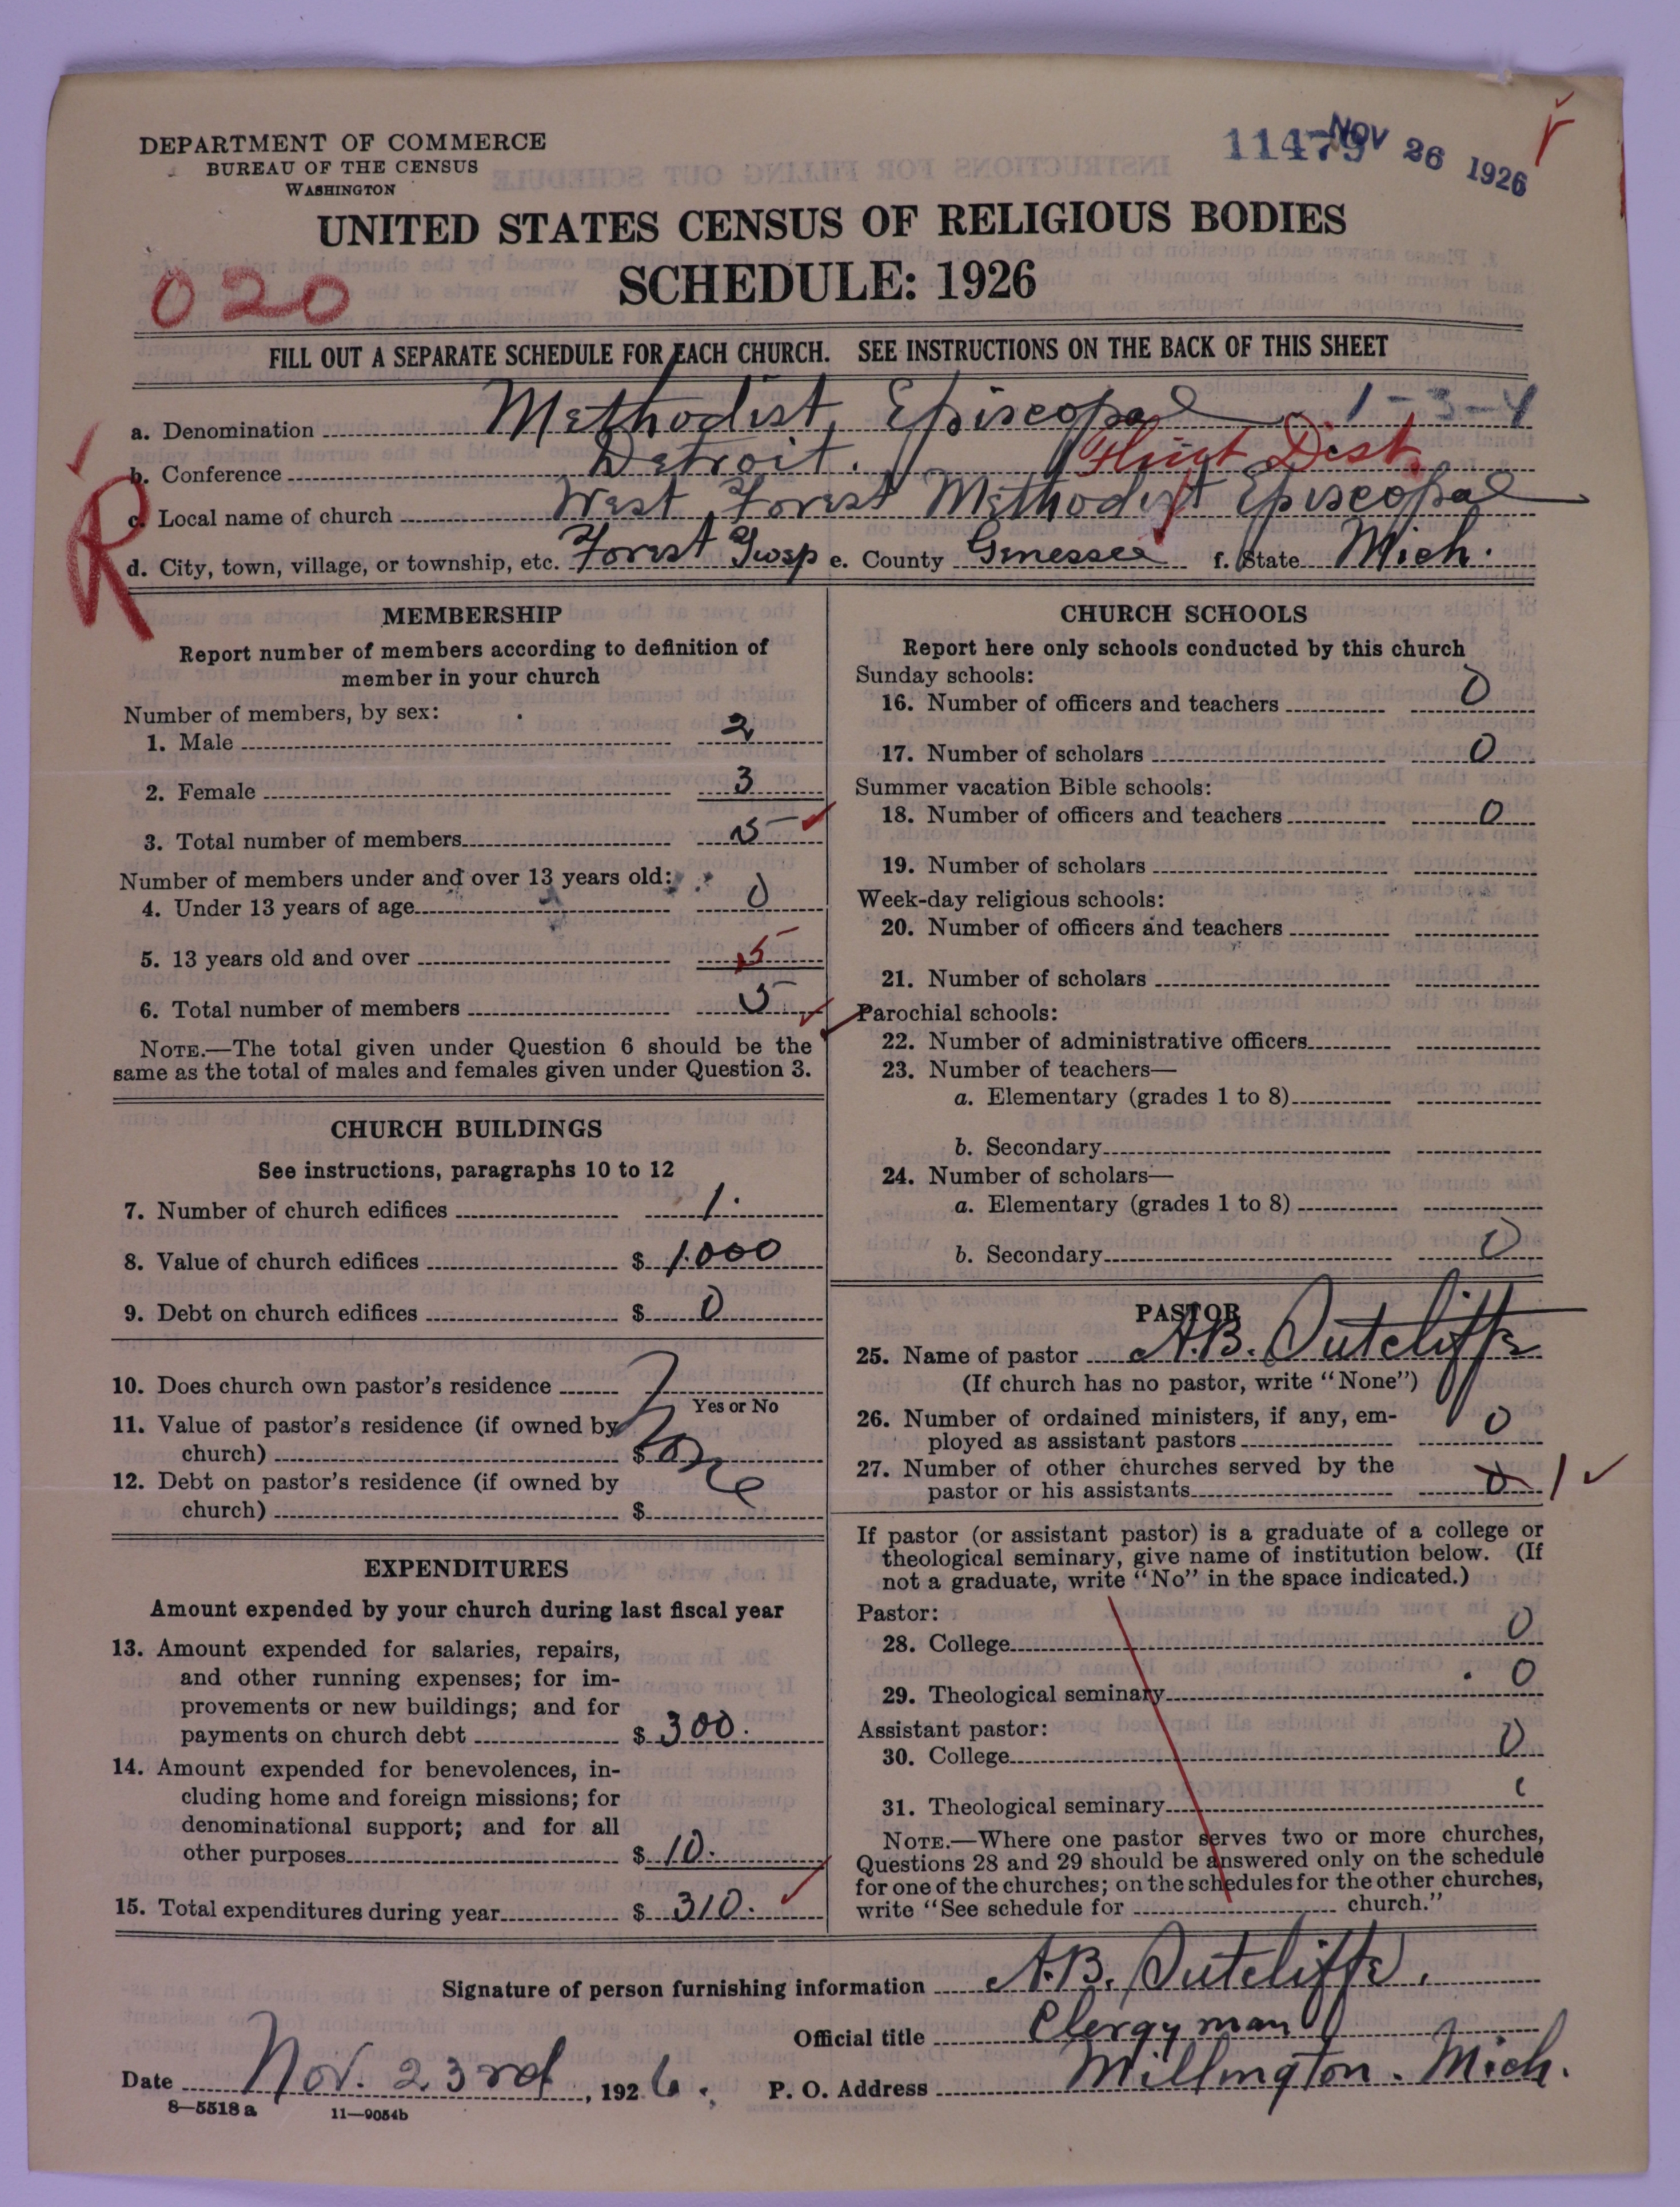 DEPARTMENT OF COMMERCE
BUREAU OF THE CENSUS
WASHINGTON
11479 NOV 26 1926
UNITED STATES CENSUS OF RELIGIOUS BODIES
SCHEDULE: 1926
020
FILL OUT A SEPARATE SCHEDULE FOR EACH CHURCH. SEE INSTRUCTIONS ON THE BACK OF THIS SHEET
a. Denomination Methodist Episcopal 1-3-4
b. Conference Detroit. Flint Dist.
R
c. Local name of church West Forest Methodist Episcopal
d. City, town, village, or township, etc. Forest Twsp e. County Genessee f. State Mich.
MEMBERSHIP
Report number of members according to definition of
member in your church
Number of members, by sex:
1. Male 2
2. Female 3
3. Total number of members 5
Number of members under and over 13 years old:
4. Under 13 years of age 0
5. 13 years old and over 5
6. Total number of members 5
NOTE.—The total given under Question 6 should be the
same as the total of males and females given under Question 3.
CHURCH BUILDINGS
See instructions, paragraphs 10 to 12
7. Number of church edifices 1.
8. Value of church edifices $ 1.000
9. Debt on church edifices $ 0
10. Does church own pastor's residence
Yes or No
11. Value of pastor's residence (if owned by
church) $
None
12. Debt on pastor's residence (if owned by
church) $
EXPENDITURES
Amount expended by your church during last fiscal year
13. Amount expended for salaries, repairs,
and other running expenses; for im-
provements or new buildings; and for
payments on church debt $ 300.
14. Amount expended for benevolences, in-
cluding home and foreign missions; for
denominational support; and for all
other purposes $ 10.
15. Total expenditures during year $ 310.
CHURCH SCHOOLS
Report here only schools conducted by this church
Sunday schools:
16. Number of officers and teachers 0
17. Number of scholars 0
Summer vacation Bible schools:
18. Number of officers and teachers 0
19. Number of scholars
Week-day religious schools:
20. Number of officers and teachers
21. Number of scholars
Parochial schools:
22. Number of administrative officers
23. Number of teachers—
a. Elementary (grades 1 to 8)
b. Secondary
24. Number of scholars—
a. Elementary (grades 1 to 8)
b. Secondary 0
PASTOR
25. Name of pastor A.B. Sutcliffe
(If church has no pastor, write "None")
26. Number of ordained ministers, if any, em-
ployed as assistant pastors 0
27. Number of other churches served by the
pastor or his assistants 0 1
If pastor (or assistant pastor) is a graduate of a college or
theological seminary, give name of institution below. (If
not a graduate, write "No" in the space indicated.)
Pastor:
28. College 0
29. Theological seminary 0
Assistant pastor:
30. College 0
31. Theological seminary
NOTE.—Where one pastor serves two or more churches,
Questions 28 and 29 should be answered only on the schedule
for one of the churches; on the schedules for the other churches,
write "See schedule for church."
Signature of person furnishing information A.B. Sutcliffe.
Official title Clergyman
Date Nov. 23rd, 1926. P. O. Address Millington. Mich.
8—5518 a 11—9054b